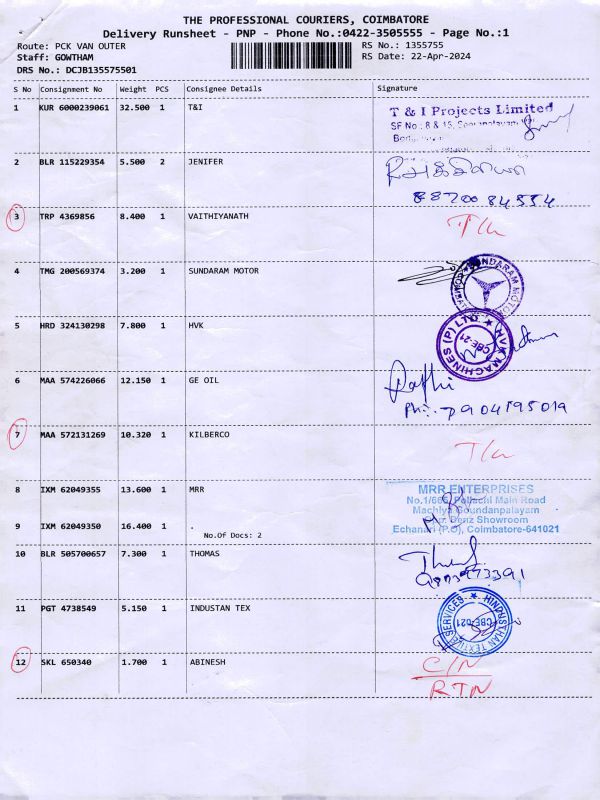 THE PROFESSIONAL COURIERS, COIMBATORE
Delivery Runsheet - PNP - Phone No.:0422-3505555 - Page No.:1
Route: PCK VAN OUTER
RS No.: 1355755
Staff: GOWTHAM
RS Date: 22-Apr-2024
DRS No.: DCJB135575501
S No Consignment No Weight PCS Consignee Details Signature
1 KUR 6000239061 32.500 1 T&I
T & I Projects Limited
SF No.: 8 & 13,
2 BLR 115229354 5.500 2 JENIFER
3 TRP 4369856 8.400 1 VAITHIYANATH
4 TMG 200569374 3.200 1 SUNDARAM MOTOR
SUNDARAM MOTOR
5 HRD 324130298 7.800 1 HVK
HVK MACHINES (P) LTD. CBE-21
6 MAA 574226066 12.150 1 GE OIL
7 MAA 572131269 10.320 1 KILBERCO
8 IXM 62049355 13.600 1 MRR
MRR ENTERPRISES
Pollachi Main Road
Machiya Goundanpalayam
Benz Showroom
Echanari (P.O), Coimbatore-641021
9 IXM 62049350 16.400 1 .
No.Of Docs: 2
10 BLR 505700657 7.300 1 THOMAS
11 PGT 4738549 5.150 1 INDUSTAN TEX
HINDUSTHAN TEXTILE SERVICES CBE-021
12 SKL 650340 1.700 1 ABINESH
C/N
RTN